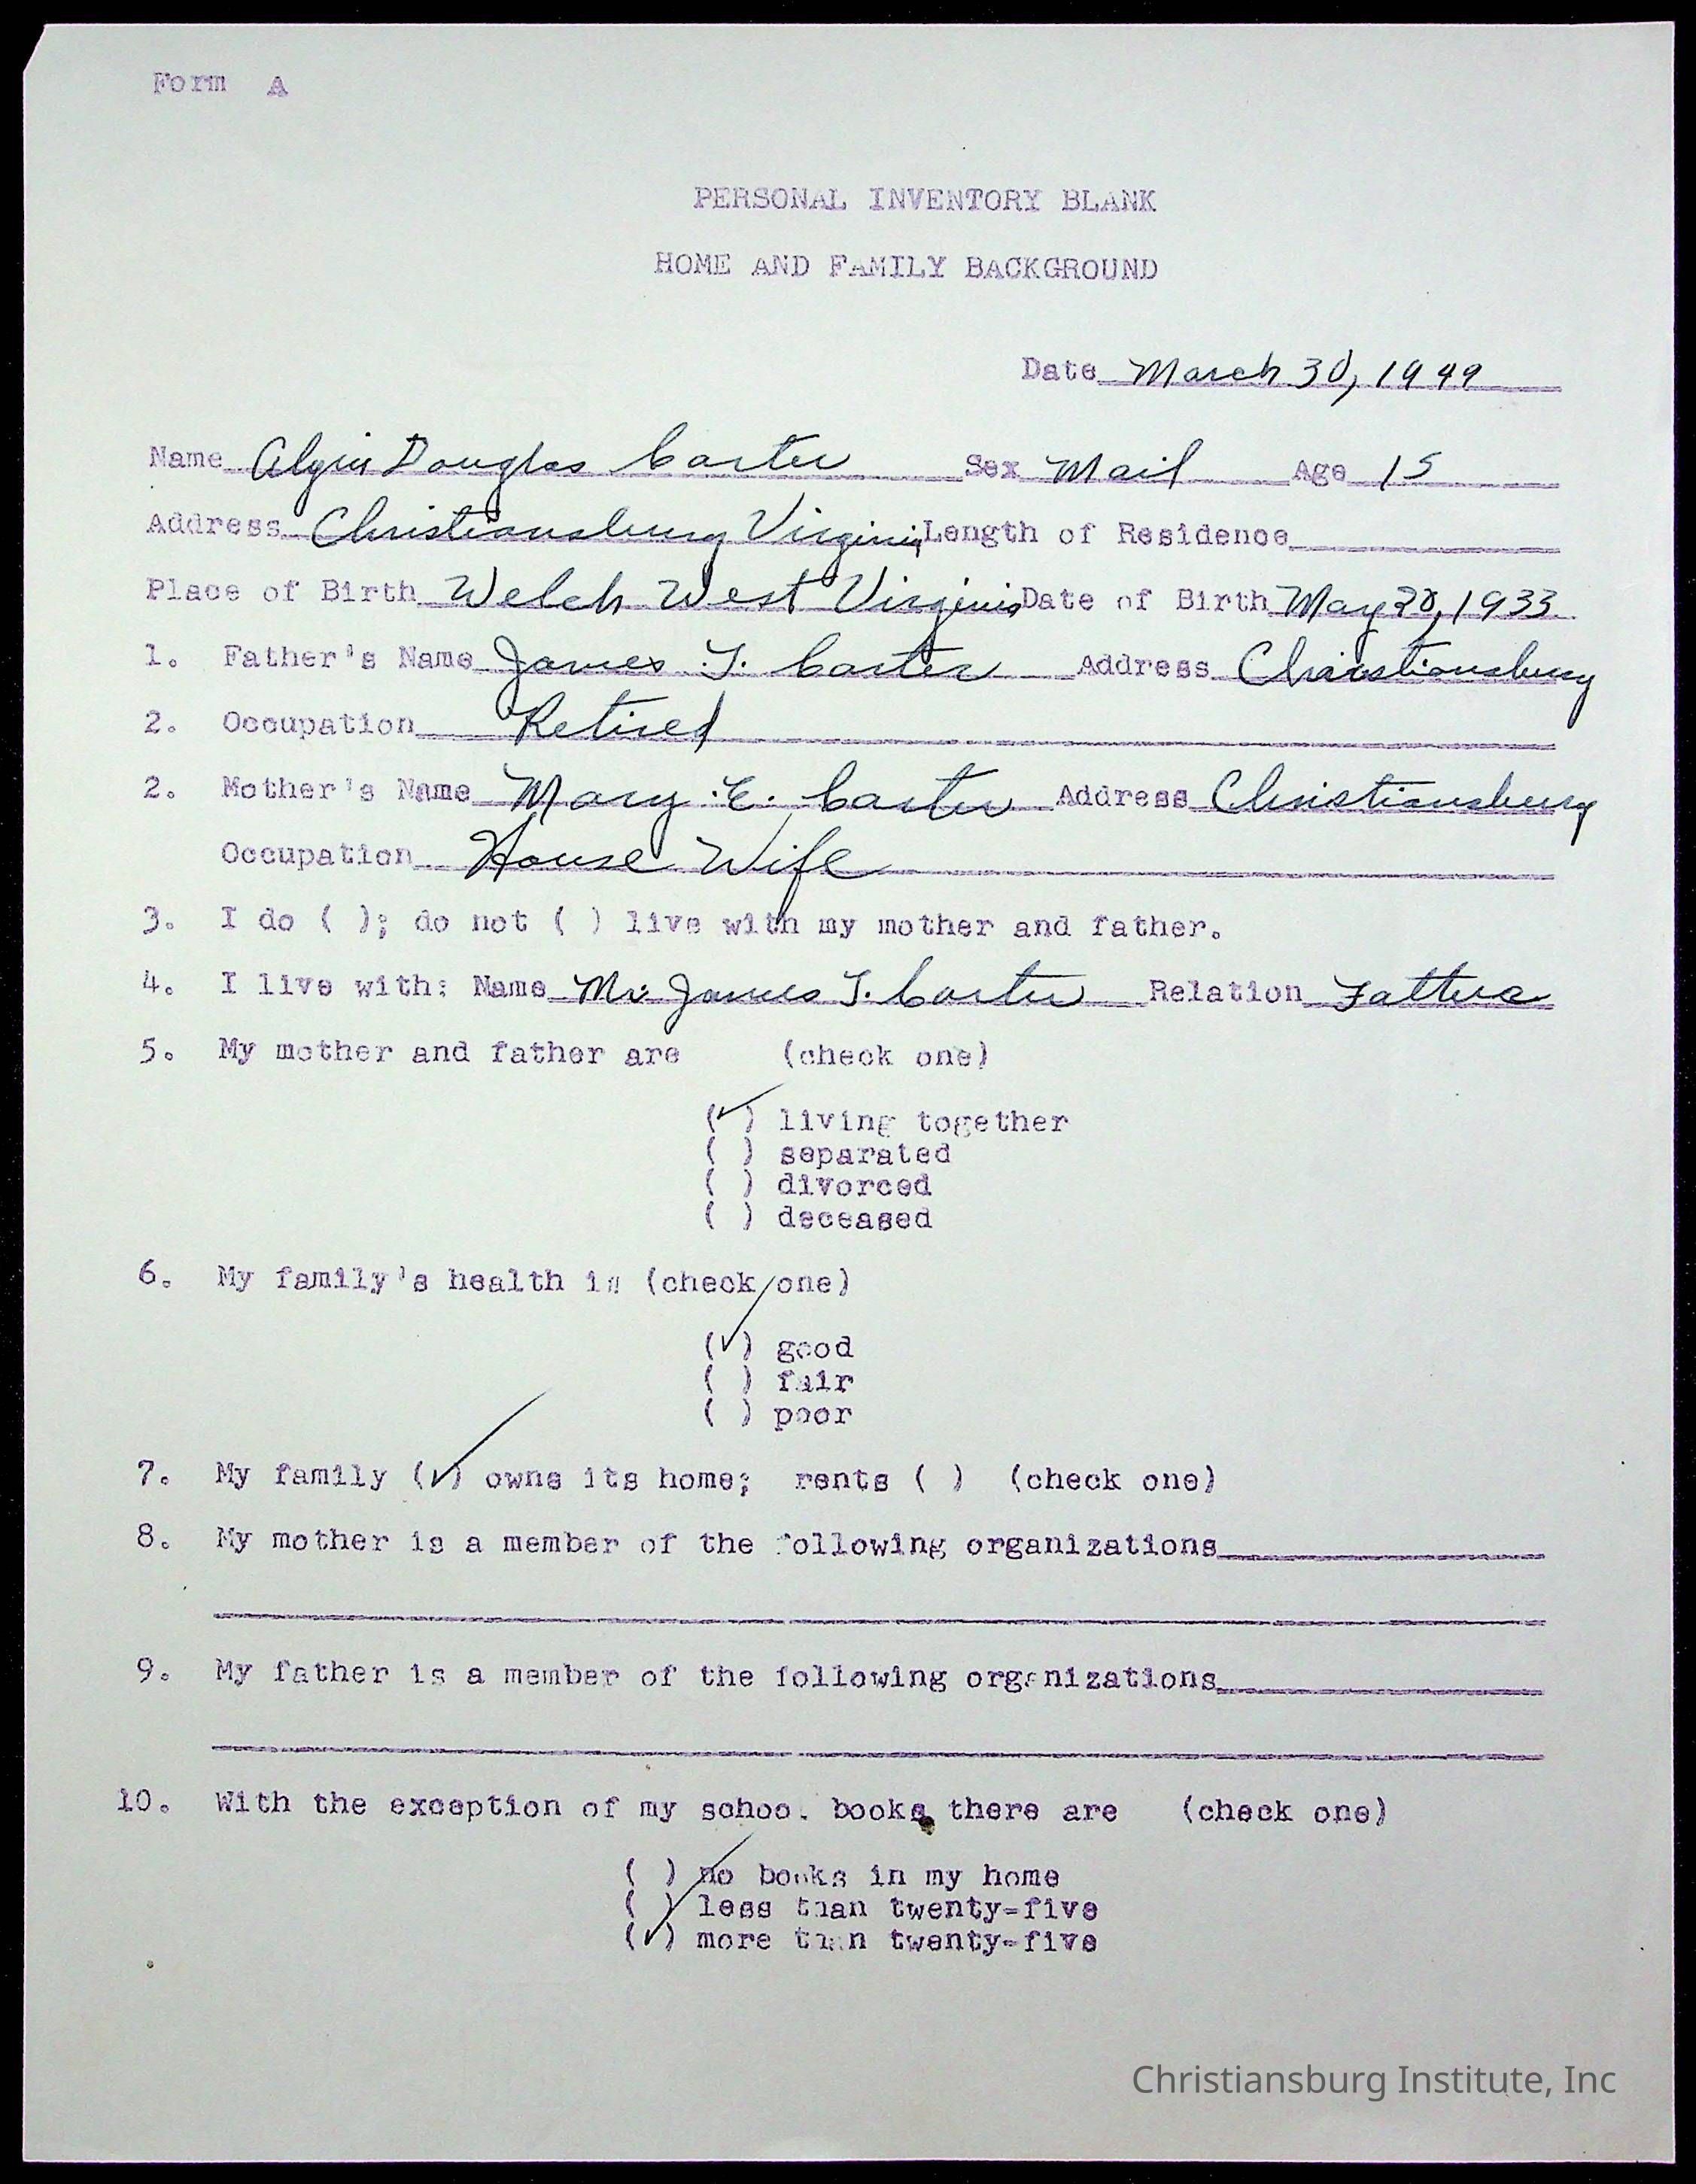 Form A
PERSONAL INVENTORY BLANK
HOME AND FAMILY BACKGROUND
Date March 30, 1949
Name Algin Douglas Carter Sex Mail Age 15
Address Christiansburg Virginia Length of Residence
Place of Birth Welch West Virginia Date of Birth May 28, 1933
1. Father's Name James T. Carter Address Christiansburg
2. Occupation Retired
2. Mother's Name Mary E. Carter Address Christiansburg
Occupation House Wife
3. I do ( ); do not ( ) live with my mother and father.
4. I live with: Name Mr. James T. Carter Relation Father
5. My mother and father are (check one)
(✓) living together
( ) separated
( ) divorced
( ) deceased
6. My family's health is (check one)
(✓) good
( ) fair
( ) poor
7. My family (✓) owns its home; rents ( ) (check one)
8. My mother is a member of the following organizations
9. My father is a member of the following organizations
10. With the exception of my school books there are (check one)
( ) no books in my home
( ) less than twenty-five
(✓) more than twenty-five
Christiansburg Institute, Inc